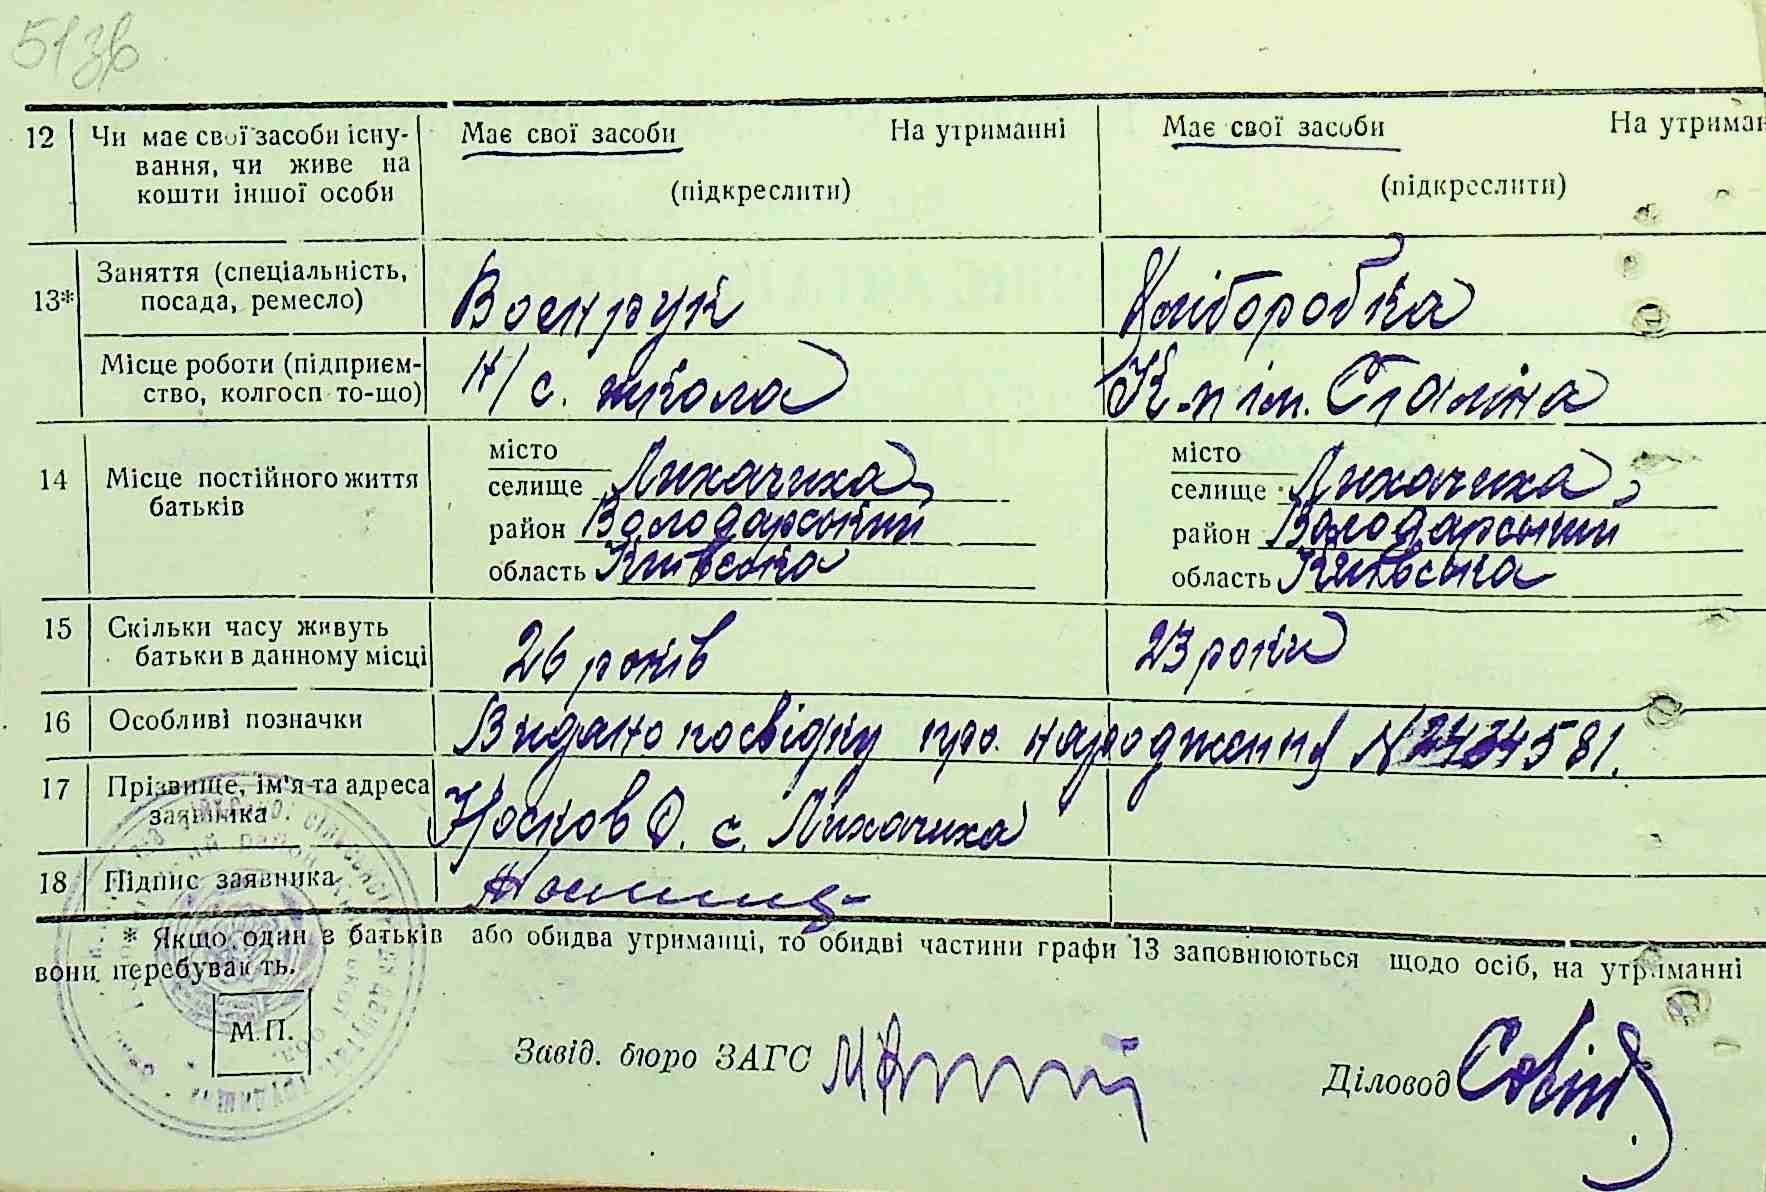 51 зв
12 Чи має свої засоби існу- Має свої засоби На утриманні Має свої засоби На утриман
вання, чи живе на
кошти іншої особи (підкреслити) (підкреслити)
13* Заняття (спеціальність, посада, ремесло) Воєнрук Хліборобка
Місце роботи (підприєм- Н/с. школа К-п ім. Сталіна
ство, колгосп то-що)
14 Місце постійного життя батьків
місто місто
селище Лихачиха, селище Лихачиха,
район Володарський район Володарський
область Київська область Київська
15 Скільки часу живуть 26 років 23 роки
батьки в данному місці
16 Особливі позначки Видано посвідку про народження N 2424581.
17 Прізвище, ім'я та адреса
заявника Носков О. с. Лихачиха
18 Підпис заявника
* Якщо один з батьків або обидва утриманці, то обидві частини графи 13 заповнюються щодо осіб, на утриманні
вони перебувають.
М.П. Завід. бюро ЗАГС Діловод